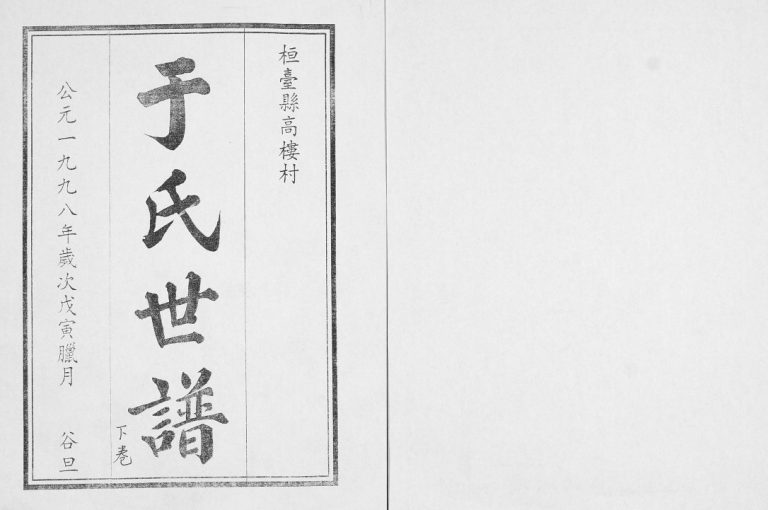 桓臺縣高樓村
于氏世譜
下卷
公元一九九八年歲次戊寅臘月 谷旦